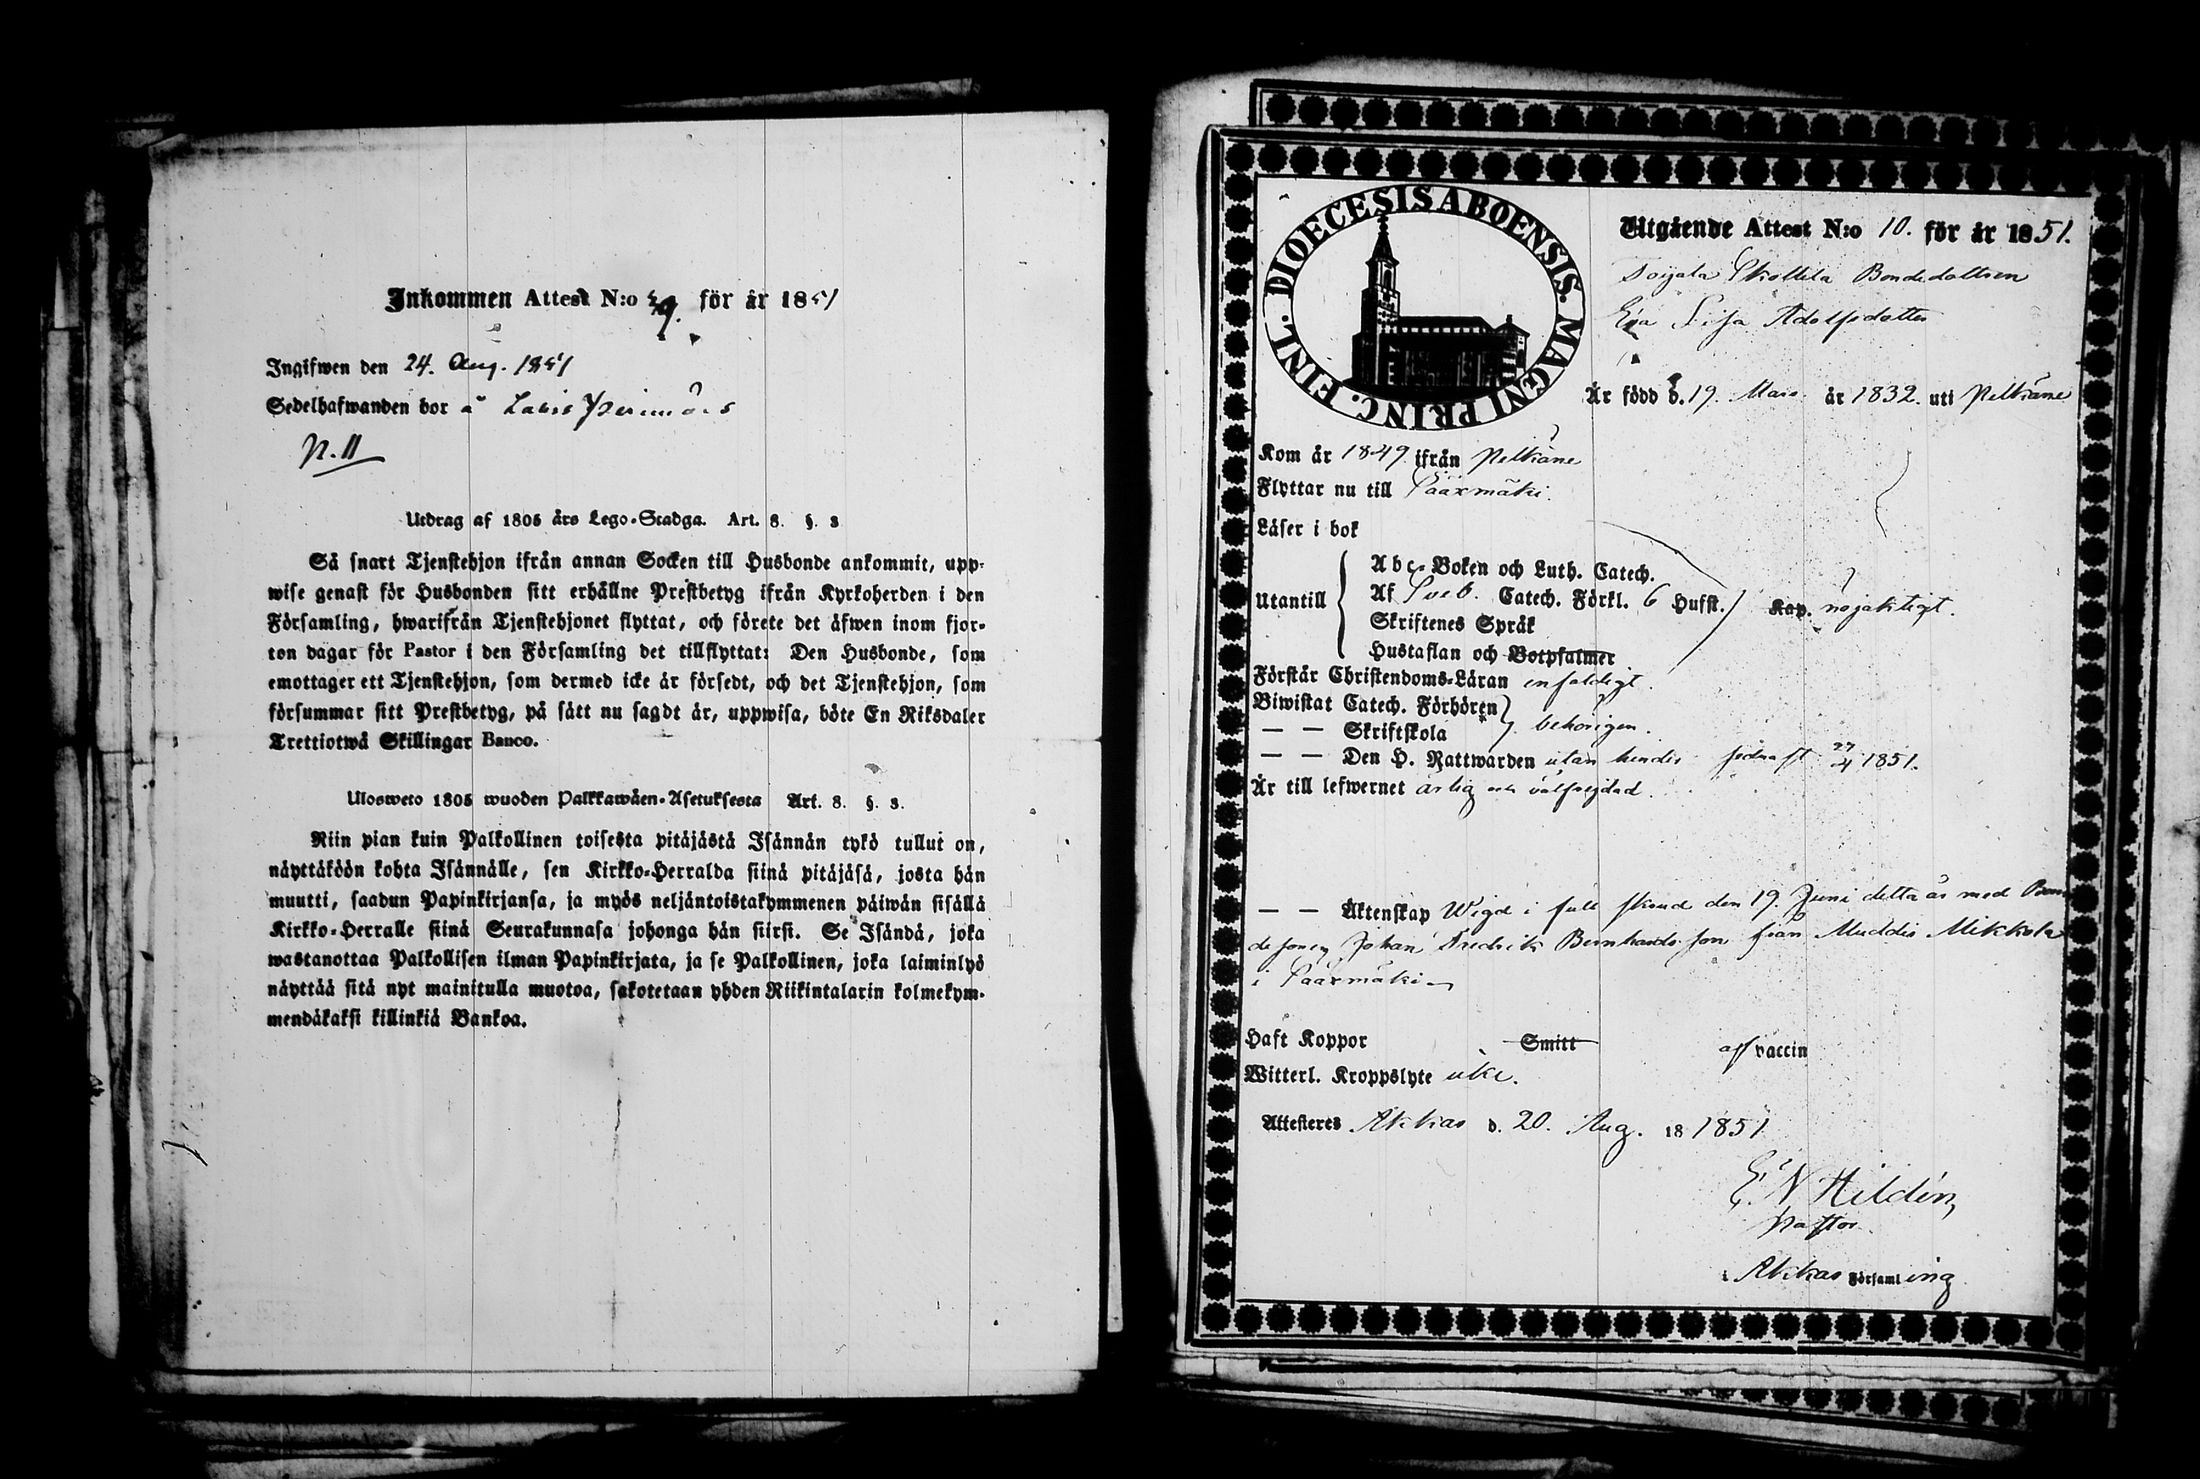 Inkommen Attest N:o 59. för år 1851
Ingifwen den 24. Aug. 1851
Sedelhafwanden bor å
N. 11
Utdrag af 1805 års Lego-Stadga. Art. 8. §. 3
Så snart Tjenstehjon ifrån annan Socken till Husbonde ankommit, upp-
wise genast för Husbonden sitt erhållne Prestbetyg ifrån Kyrkoherden i den
Församling, hwarifrån Tjenstehjonet flyttat, och förete det äfwen inom fjor-
ton dagar för Pastor i den Församling det tillflyttat: Den Husbonde, som
emottager ett Tjenstehjon, som dermed icke är försedt, och det Tjenstehjon, som
försummar sitt Prestbetyg, på sätt nu sagdt är, uppwisa, böte En Riksdaler
Trettiotwå Skillingar Banco.
Ulosweto 1805 wuoden Palkkawäen-Asetuksesta Art. 8. §. 3.
Niin pian kuin Palkollinen toisesta pitäjästä Isännän tykö tullut on,
näyttäköön kohta Isännälle, sen Kirkko-Herralda siinä pitäjäsä, josta hän
muutti, saadun Papinkirjansa, ja myös neljäntoistakymmenen päiwän sisällä
Kirkko-Herralle siinä Seurakunnasa johonga hän siirsi. Se Isändä, joka
wastanottaa Palkollisen ilman Papinkirjata, ja se Palkollinen, joka laiminlyö
näyttää sitä nyt mainitulla muotoa, sakotetaan yhden Riikintalarin kolmekym-
mendäkaksi killinkiä Bankoa.
DIOECESIS ABOENSIS. MAGNI PRINC. FINL.
Utgående Attest N:o 10. för år 1851.
Bondedottren
Eva Lisa Adolfsdotter
Är född d. 19. Mars år 1832. uti Pelkäne
Kom år 1849 ifrån Pelkäne
Flyttar nu till Sääxmäki.
Läser i bok
Utantill
Abc-Boken och Luth. Catech.
Af Sveb. Catech. Förkl. 6 Hufst. Kap. nöjaktigt.
Skriftenes Språk
Hustaflan och Botpsalmer
Förstår Christendoms-Läran enfaldigt.
Biwistat Catech. Förhören
— — Skriftskola behörigen.
— — Den H. Nattwarden utan hinder sednast 27/4 1851.
Är till lefwernet ärlig och välfrejdad.
— — Äktenskap Wigd i full stånd den 19. Juni detta år med Bon
desonen Johan Fredrik Bernhardsson från Muddis Mikkola
i Sääxmäki
Haft Koppor Smitt af vaccin
Witterl. Kroppslyte icke.
Attesteres Akkas d. 20. Aug. 18 1851
E. N Hildén,
Pastor
i Akkas Församling